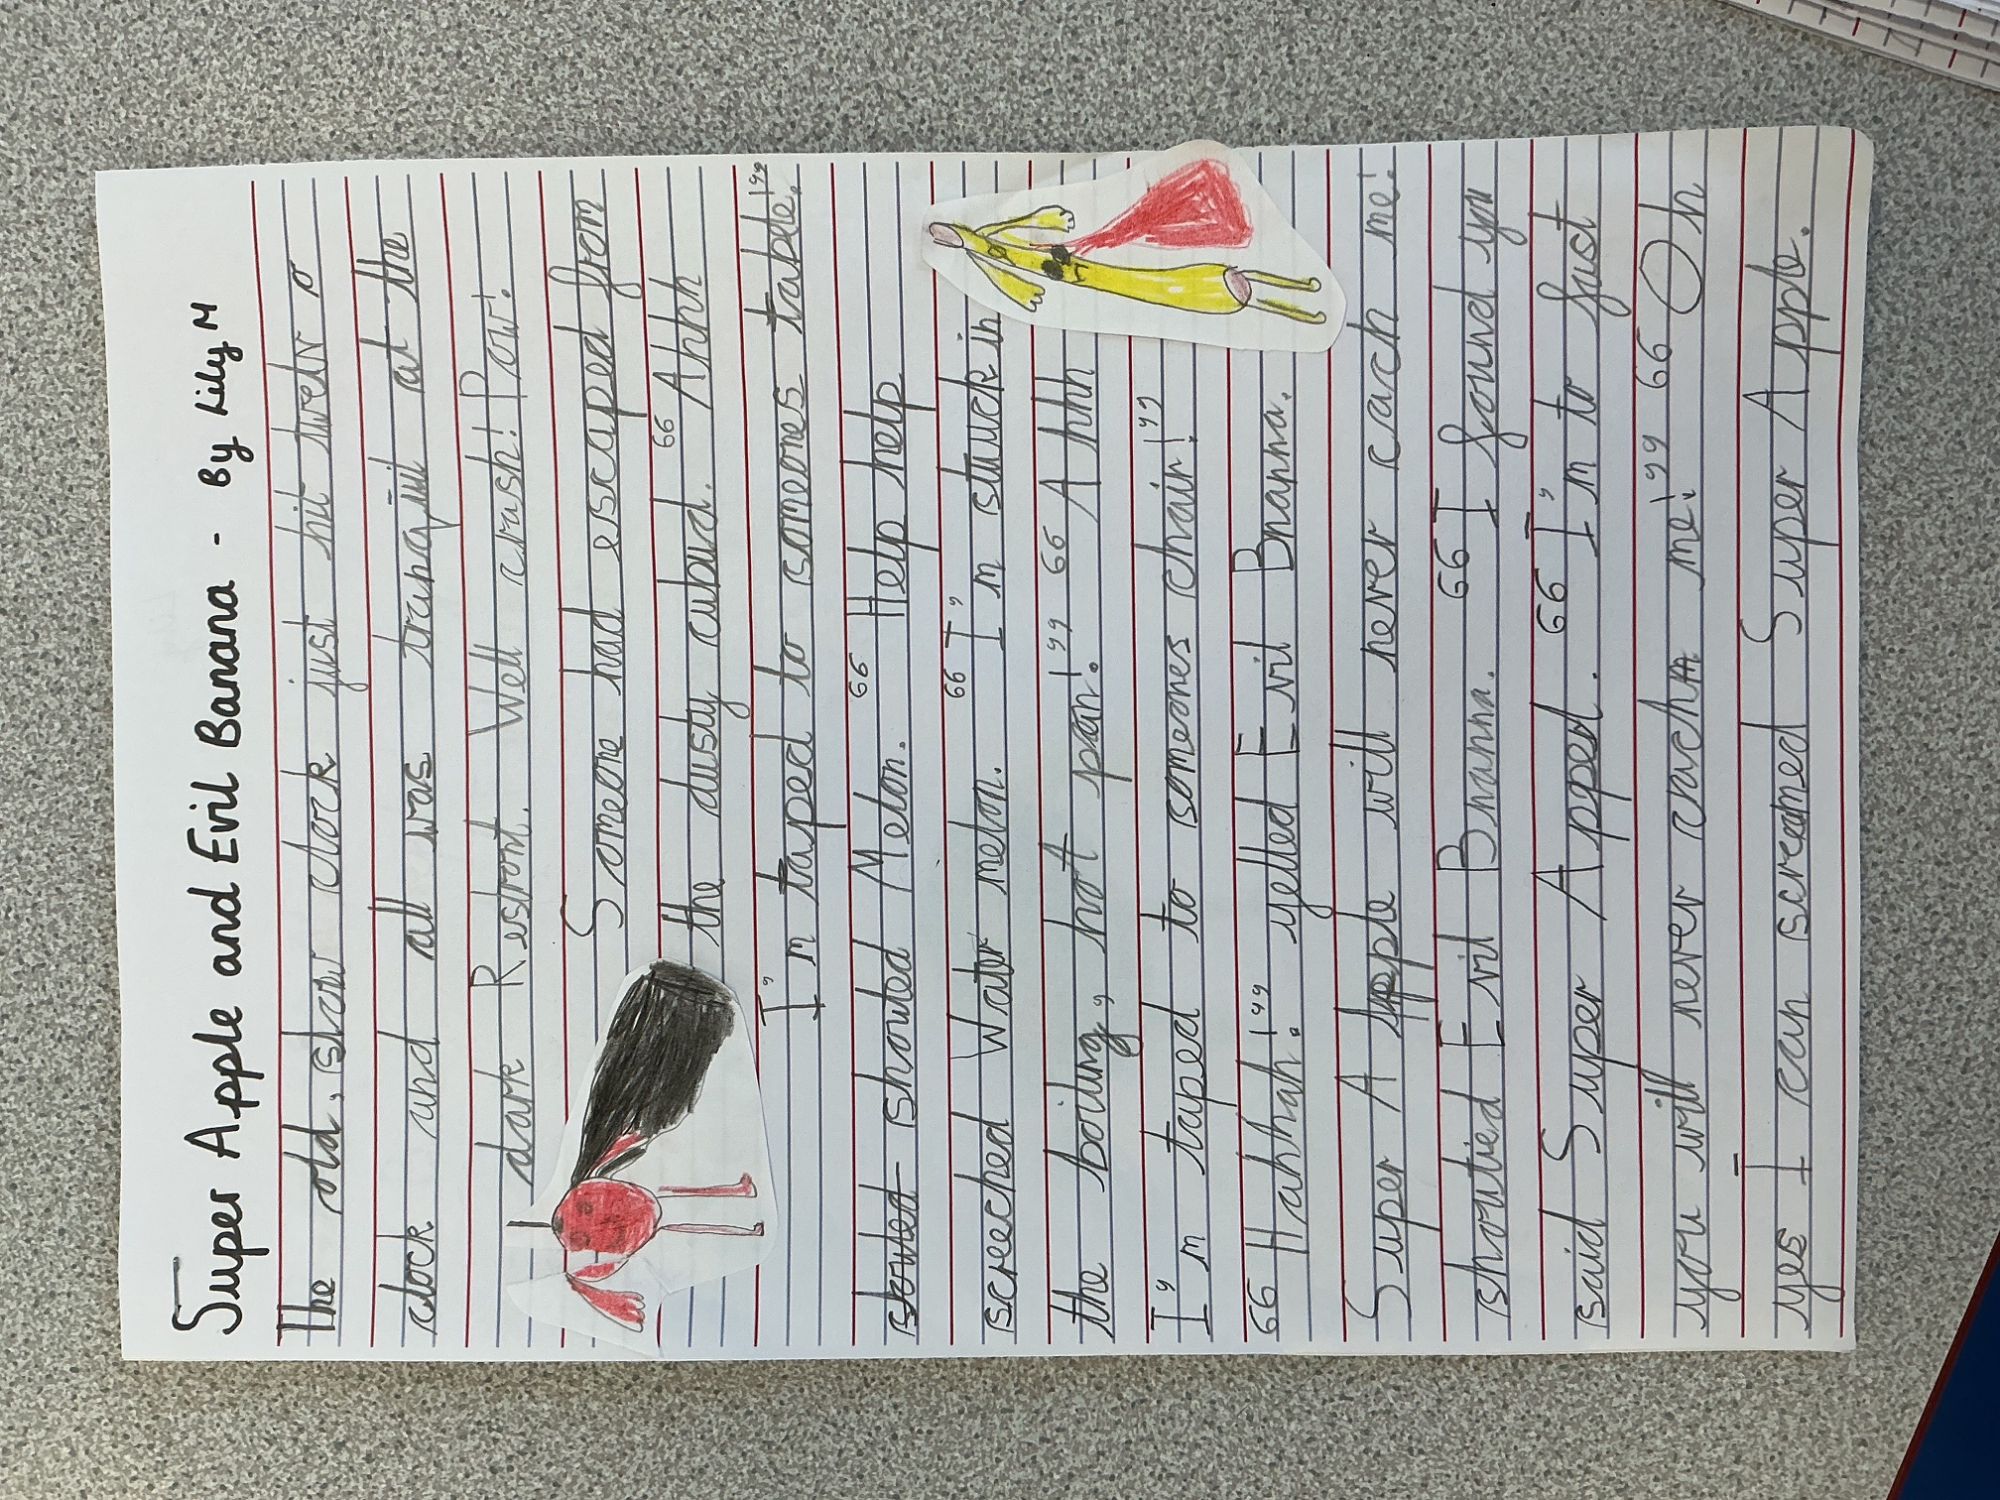 Super Apple and Evil Banana - By Lily M
The old, slow clock just hit twelv o
clock and all was tranquil at the
dark Restront. Well crash! Pow!.
Someone had escaped from
the dusty cubud. "Ahh
I'm taped to someones table!."
shouted Melon. "Help help
screeched Water melon. "I'm stuck in
the boiling, hot pan!." "Ahhh
I'm taped to someones chair!."
"Hahhah!." yelled Evil Bnanna.
Super Apple will never cach me!
shoutied Evil Bnanna. "I found you
said Super Appel. "I'm to fast
you will never cach me!." "Oh
yes I can screamed Super Apple.